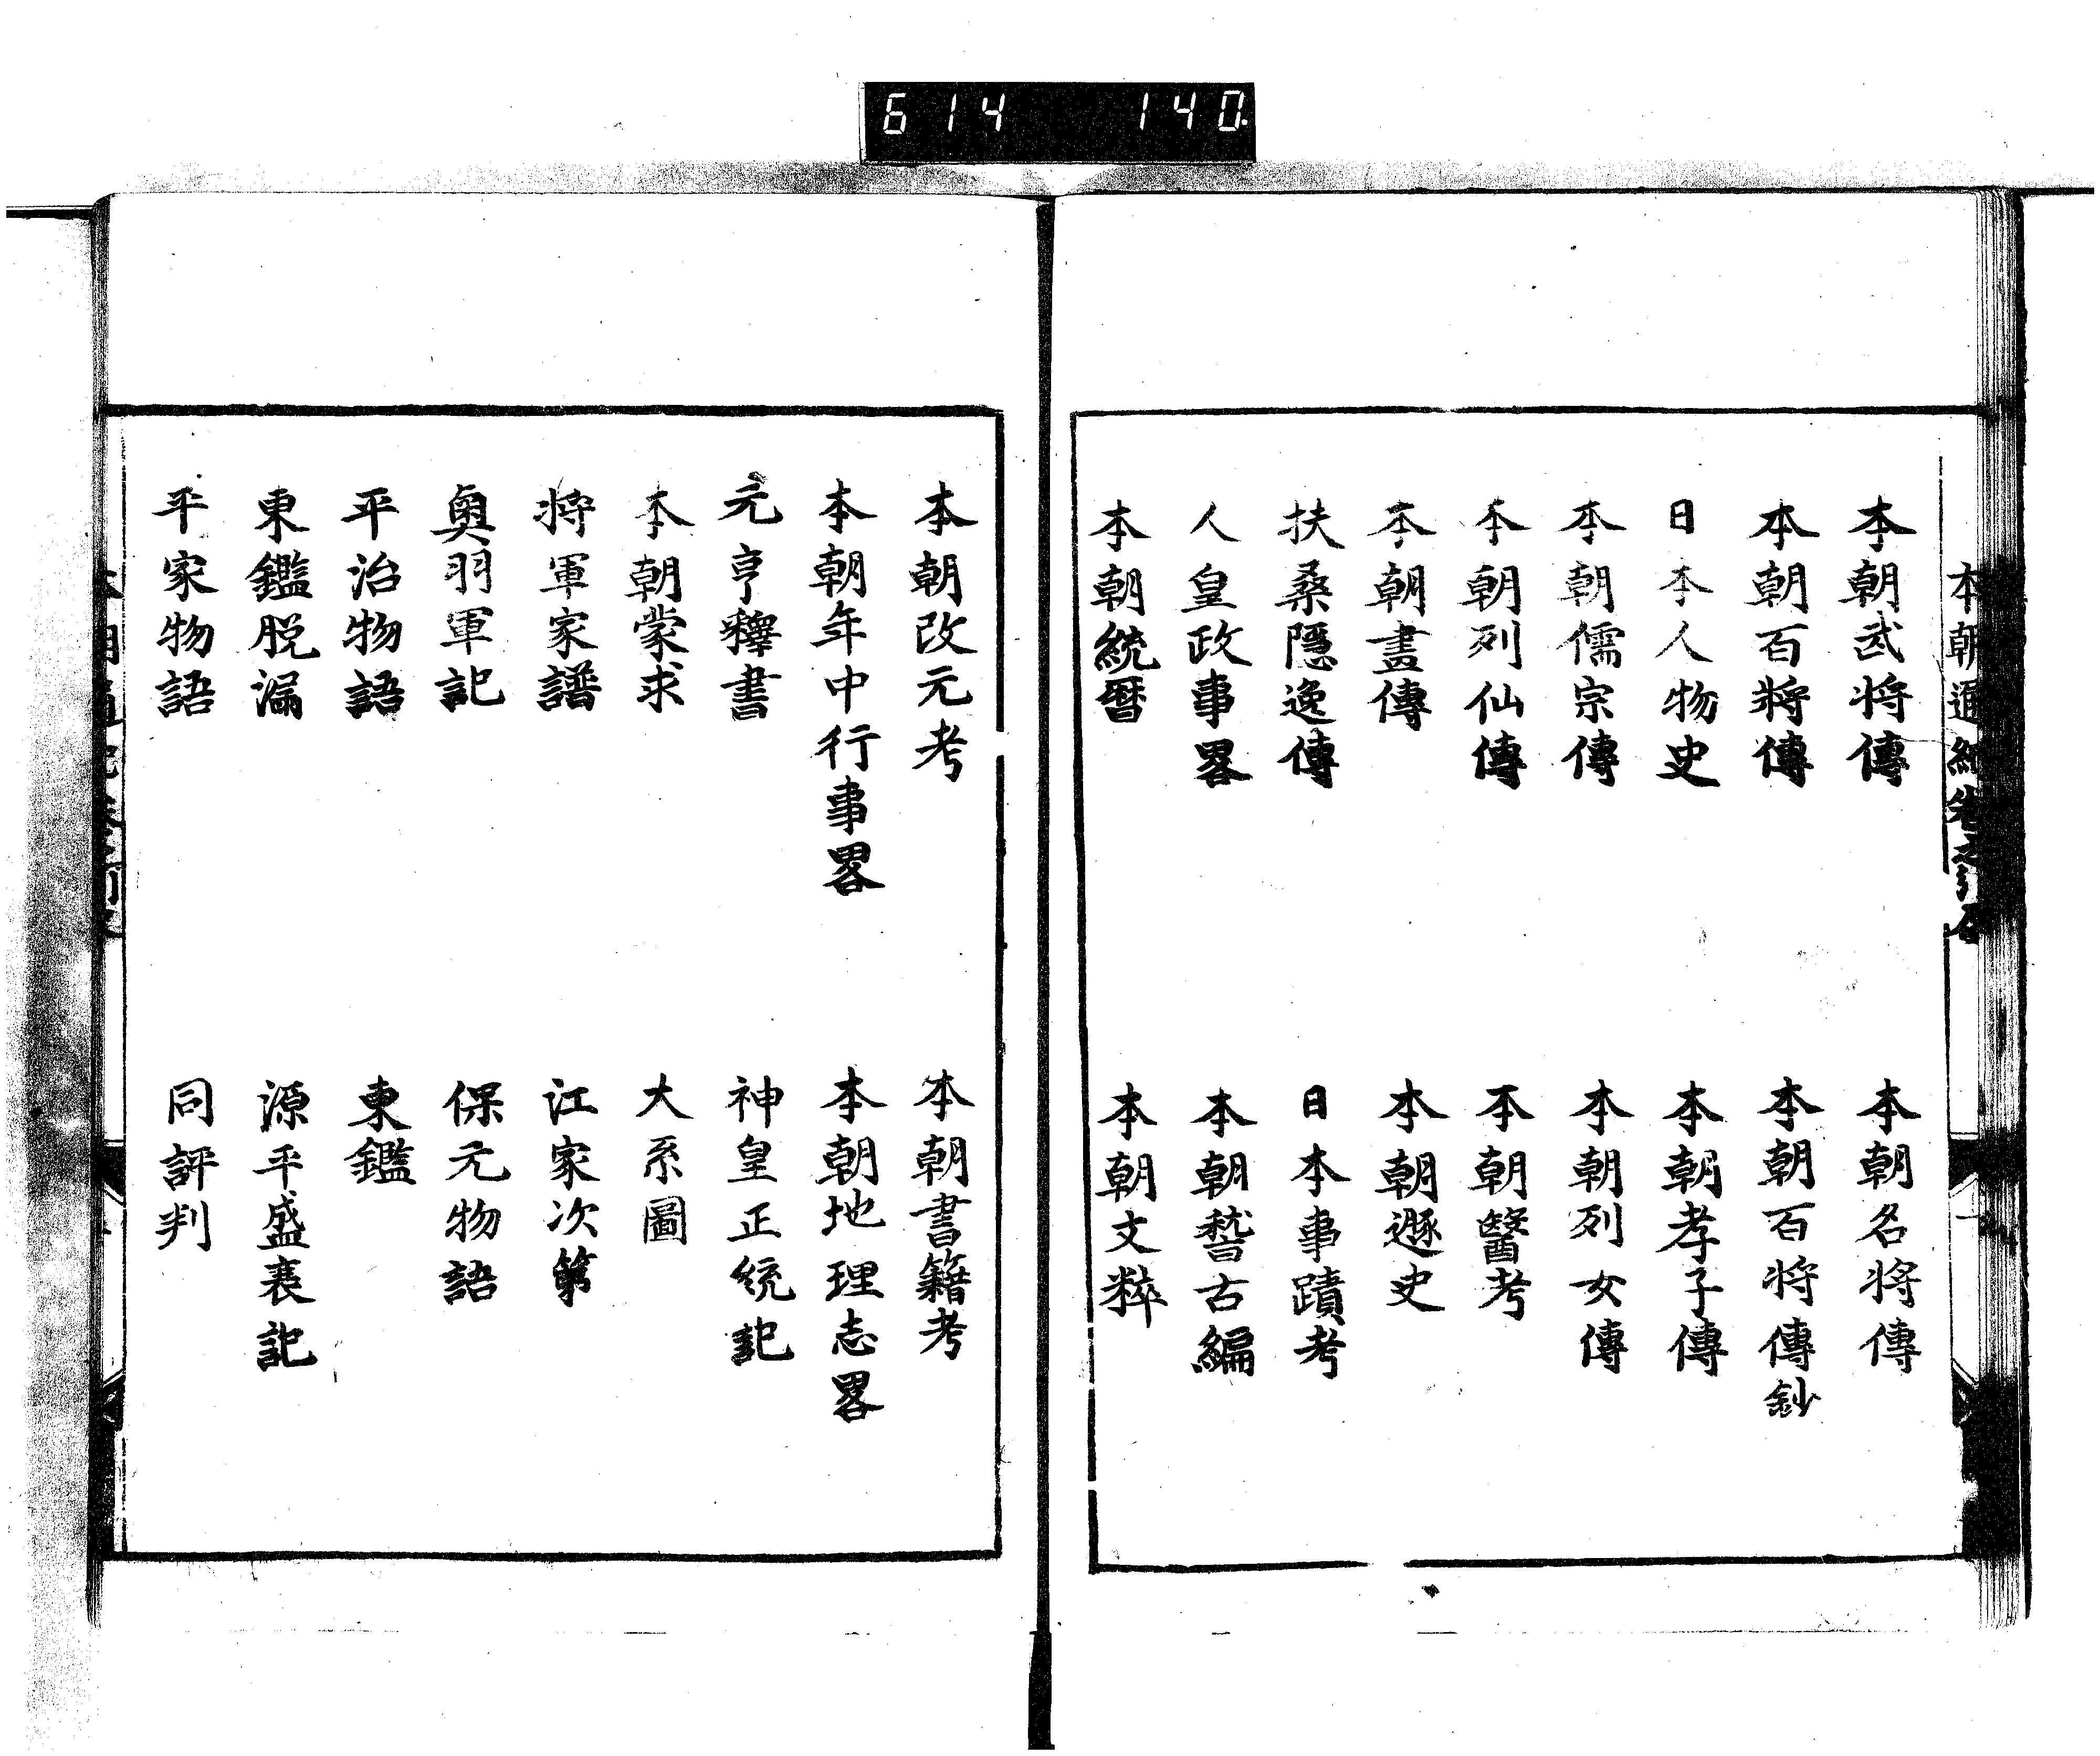 614 140.
本朝武将傳 本朝名将傳
本朝百将傳 本朝百将傳鈔
日本人物史 本朝孝子傳
本朝儒宗傳 本朝列女傳
本朝列仙傳 本朝醫考
本朝畫傳 本朝遯史
扶桑隱逸傳 日本事蹟考
人皇政事畧 本朝稽古編
本朝統暦 本朝文粹
本朝改元考 本朝書籍考
本朝年中行事畧 本朝地理志畧
元亨釋書 神皇正統記
本朝蒙求 大系圖
将軍家譜 江家次第
奥羽軍記 保元物語
平治物語 東鑑
東鑑脱漏 源平盛衰記
平家物語 同評判